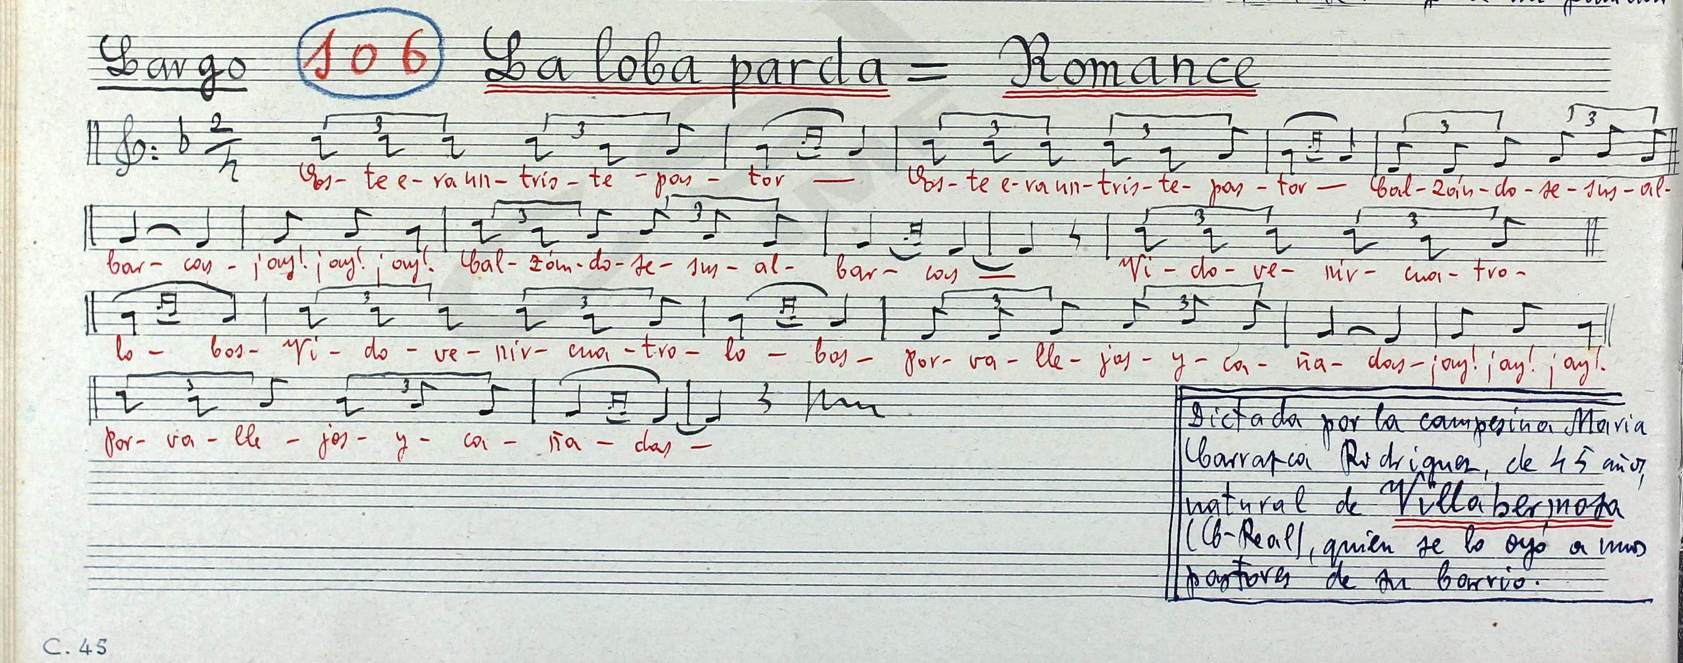 Largo 106 La loba parda = Romance
Es- te e- ra un- tris- te - pas - tor — Es- te e- ra un- tris- te- pas - tor — Cal- zán- do- se- sus- al-
bar- cas - ¡ay! ¡ay! ¡ay! Cal- zán- do- se- sus- al- bar- cas — Vi- do- ve- nir- cua- tro-
lo - bos- Vi- do- ve- nir- cua- tro- lo - bos- por- va- lle- jos- y- ca- ña- das- ¡ay! ¡ay! ¡ay!
por- va- lle- jos- y- ca- ña- das -
Dictada por la campesina Maria
Barrasca Rodriguez, de 45 años,
natural de Villahermosa
(C-Real), quien se lo oyó a unos
pastores de su barrio.
C. 45